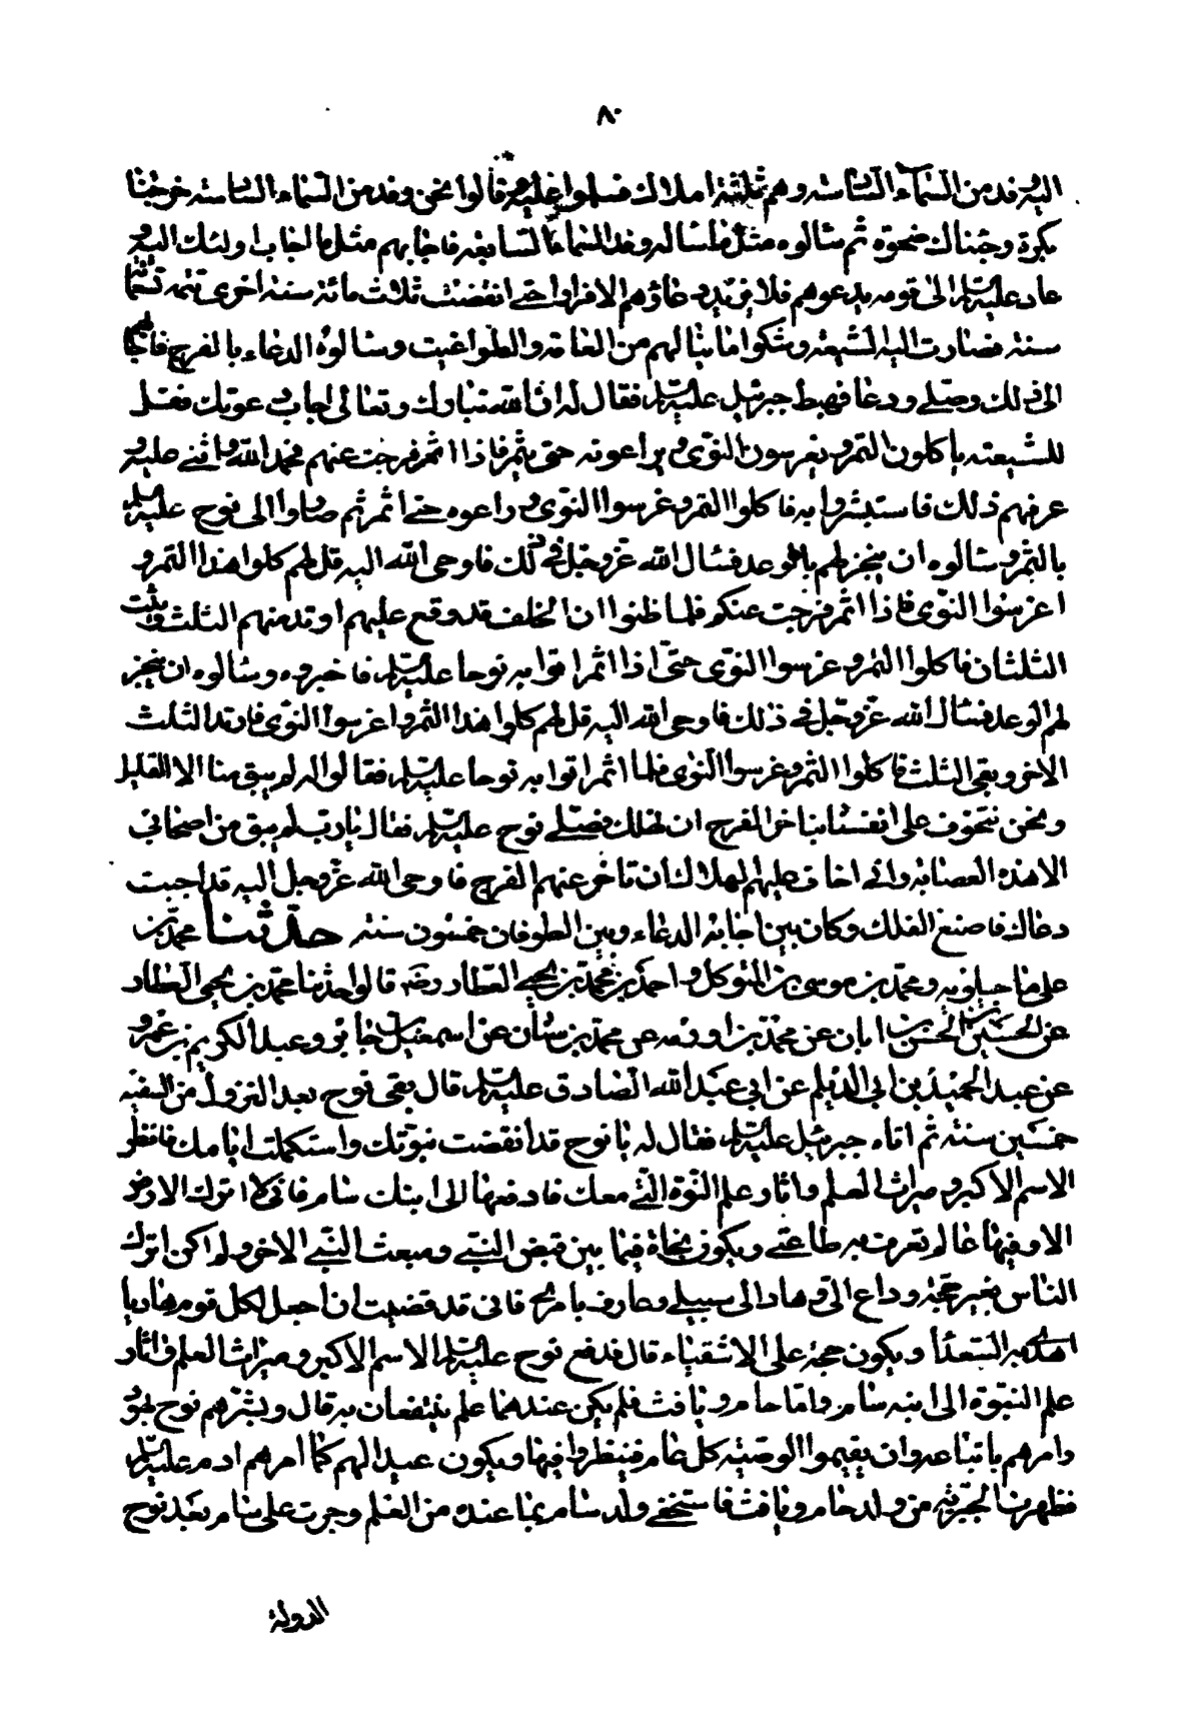 ٨٠
اليه وفد من السماء السادسة وهم ثلثة املاك فسلموا عليه وقالوا نحن وفد من السماء السادسة خرجنا
بكرة وجئناك ضحوة ثم سالوه مثل ما ساله وفد السماء السابعة فاجابهم مثل ما اجاب اولئك اليه و
عاد عليه السلم الى قومه يدعوهم فلا يزيدهم دعاؤه الا فرارا حتى انقضت ثلاث مائة سنة اخرى تتمة تسعمائة
سنة فصارت اليه الشيعة وشكوا ما ينالهم من العامة والطواغيت وسالوه الدعاء بالفرج فاجابهم
الى ذلك وصلى ودعا فهبط جبرئيل عليه السلم فقال له ان الله تبارك وتعالى اجاب دعوتك فقل
للشيعته ياكلون التمر ويغرسون النوى ويراعونه حتى يثمر فاذا اثمر فرجت عنهم فحمد الله واثنى عليه و
عرفهم ذلك فاستبشروا به فاكلوا التمر وغرسوا النوى وراعوه حتى اثمر ثم صاروا الى نوح عليه السلم
بالتمر وسالوه ان ينجز لهم بالموعد فسال الله عز وجل فى ذلك فاوحى الله اليه قل لهم كلوا هذا التمر و
اغرسوا النوى فاذا اثمر فرجت عنكم فلما ظنوا ان الخلف قد وقع عليهم ارتد منهم الثلث وثبت
الثلثان فاكلوا التمر وغرسوا النوى حتى اذا اثمر اتوا به نوحا عليه السلم فاخبروه وسالوه ان ينجز
لهم الوعد فسال الله عز وجل فى ذلك فاوحى الله اليه قل لهم كلوا هذا التمر واغرسوا النوى فارتد الثلث
الاخر وبقى الثلث فاكلوا التمر وغرسوا النوى فلما اثمر اتوا به نوحا عليه السلم فقالوا له لم يبق منا الا القليل
ونحن نتخوف على انفسنا بتاخر الفرج ان نهلك فصلى نوح عليه السلم فقال يا رب لم يبق من اصحابى
الا هذه العصابة وانى اخاف عليهم الهلاك ان تاخر عنهم الفرج فاوحى الله عز وجل اليه قد اجبت
دعاك فاصنع الفلك وكان بين اجابة الدعاء وبين الطوفان خمسون سنة حدثنا محمد بن
على ماجيلويه ومحمد بن موسى بن المتوكل واحمد بن محمد بن يحيى العطار رضه قالوا حدثنا محمد بن يحيى العطار
عن الحسين بن الحسن بن ابان عن محمد بن اورمه عن محمد بن سنان عن اسمعيل بن جابر وعبد الكريم بن عمرو
عن عبد الحميد بن ابى الديلم عن ابى عبد الله الصادق عليه السلم قال بقى نوح بعد النزول من السفينة
خمسين سنة ثم اتاه جبرئيل عليه السلم فقال له يا نوح قد انقضت نبوتك واستكملت ايامك فانظر
الاسم الاكبر وميراث العلم واثار علم النبوة التى معك فادفعها الى ابنك سام فانى لا اترك الارض
الا وفيها عالم تعرف به طاعتى ويكون نجاة فيما بين قبض النبى ومبعث النبى الاخر ولم اكن اترك
الناس بغير حجة وداع الى وهاد الى سبيلى وعارف بامرى فانى قد قضيت ان اجعل لكل قوم هاديا
اهدى به السعدا ويكون حجة على الاشقياء قال فدفع نوح عليه السلم الاسم الاكبر وميراث العلم واثار
علم النبوة الى ابنه سام واما حام ويافث فلم يكن عندهما علم ينتفعان به قال وبشرهم نوح بهود
وامرهم باتباعه وان يقيموا الوصية كل عام فينظروا فيها ويكون عيدا لهم كما امرهم ادم عليه السلم
فظهرت الجبرية من ولد حام ويافث فاستخفى ولد سام بما عنده من العلم وجرت على سام بعد نوح
الدولة